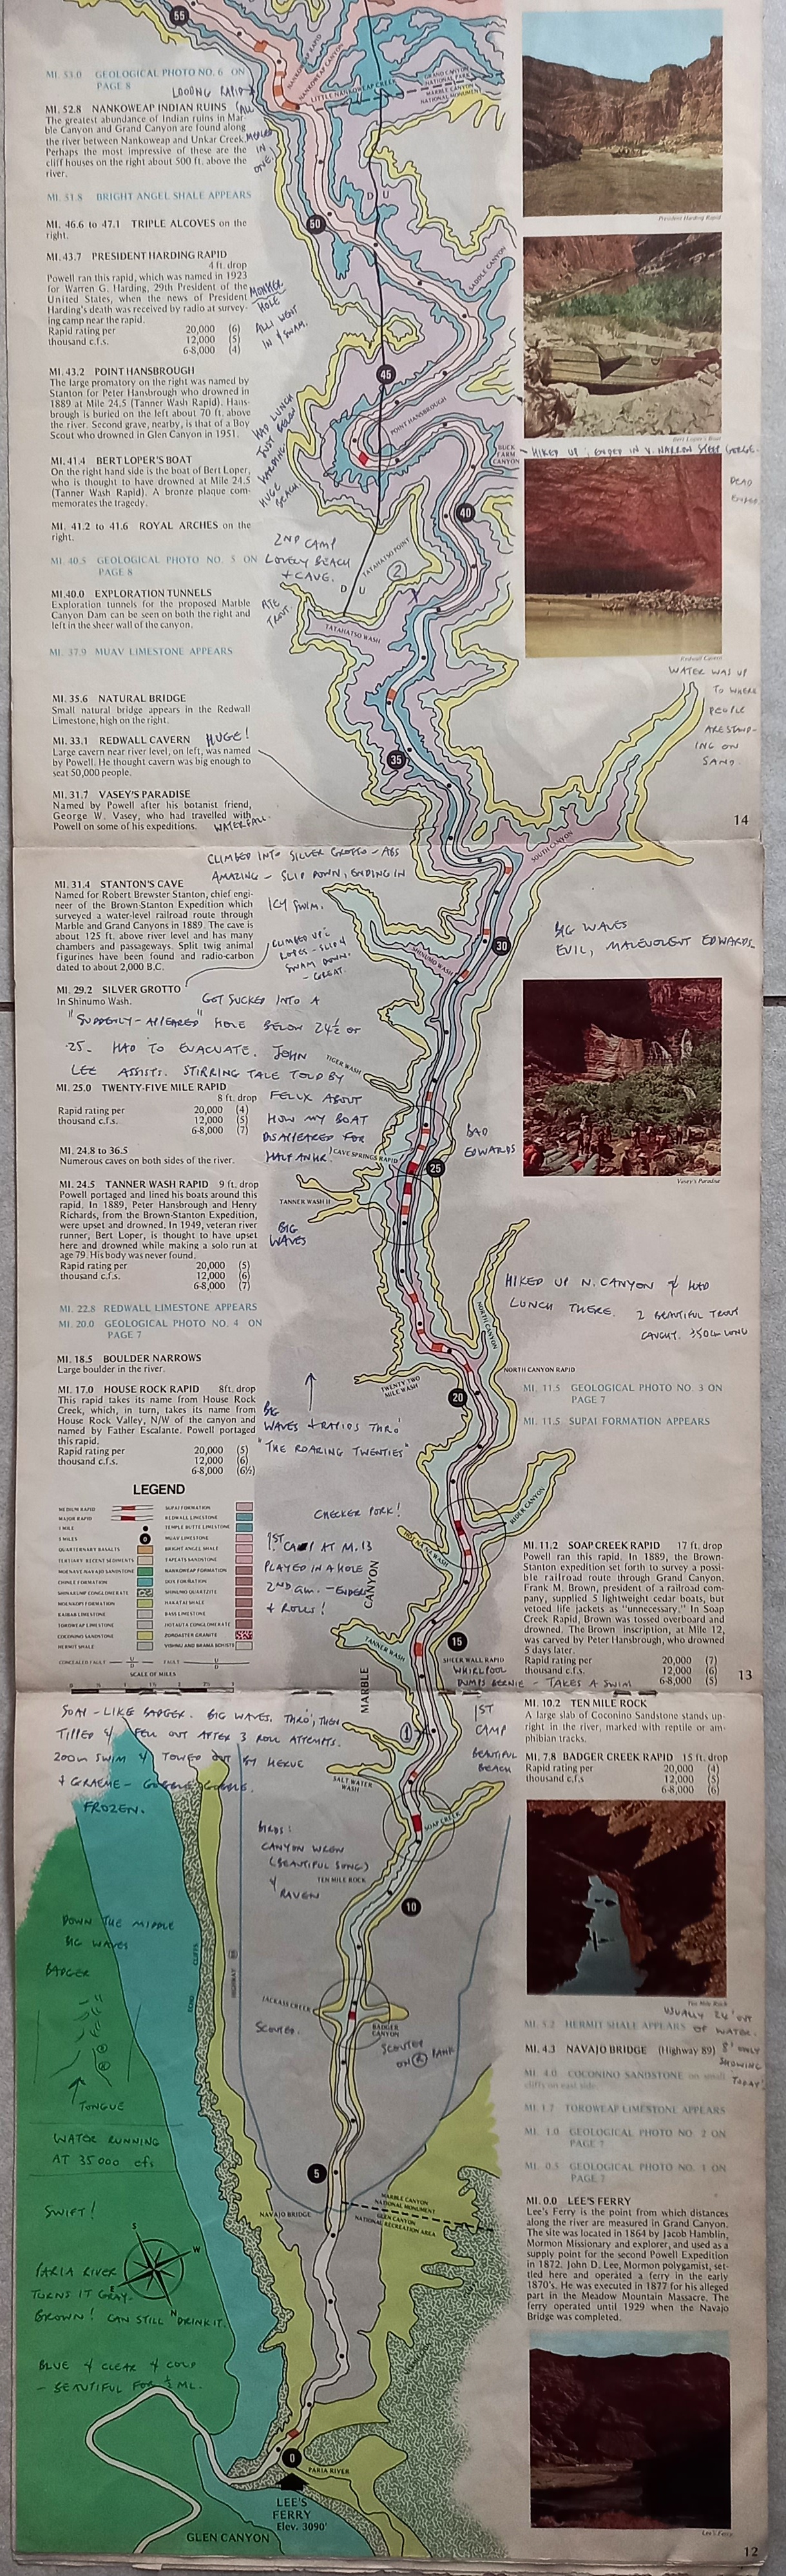 55
MI. 53.0 GEOLOGICAL PHOTO NO. 6 ON
PAGE 8
NANKOWEAP RAPID
NANKOWEAP CANYON
LITTLE NANKOWEAP CREEK
GRAND CANYON
NATIONAL PARK
MARBLE CANYON
NATIONAL MONUMENT
MI. 52.8 NANKOWEAP INDIAN RUINS
The greatest abundance of Indian ruins in Mar-
ble Canyon and Grand Canyon are found along
the river between Nankoweap and Unkar Creek.
Perhaps the most impressive of these are the
cliff houses on the right about 500 ft. above the
river.
MI. 51.8 BRIGHT ANGEL SHALE APPEARS
D U
President Harding Rapid
MI. 46.6 to 47.1 TRIPLE ALCOVES on the
right.
50
MI. 43.7 PRESIDENT HARDING RAPID
4 ft. drop
Powell ran this rapid, which was named in 1923
for Warren G. Harding, 29th President of the
United States, when the news of President
Harding's death was received by radio at survey-
ing camp near the rapid.
Rapid rating per 20,000 (6)
thousand c.f.s. 12,000 (5)
6-8,000 (4)
HOLE
ALLI WENT
IN & SWAM.
SADDLE CANYON
45
MI. 43.2 POINT HANSBROUGH
The large promatory on the right was named by
Stanton for Peter Hansbrough who drowned in
1889 at Mile 24.5 (Tanner Wash Rapid). Hans-
brough is buried on the left about 70 ft. above
the river. Second grave, nearby, is that of a Boy
Scout who drowned in Glen Canyon in 1951.
HAD LUNCH
JUST BELOW
HARDING
HUGE
BEACH
POINT HANSBROUGH
BUCK
FARM
CANYON
Bert Loper's Boat
HIKED UP, ENDED IN V. NARROW STEEP GORGE.
DEAD
ENDED.
MI. 41.4 BERT LOPER'S BOAT
On the right hand side is the boat of Bert Loper,
who is thought to have drowned at Mile 24.5
(Tanner Wash Rapid). A bronze plaque com-
memorates the tragedy.
MI. 41.2 to 41.6 ROYAL ARCHES on the
right.
40
MI. 40.5 GEOLOGICAL PHOTO NO. 5 ON
PAGE 8
2ND CAMP
LOVELY BEACH
+ CAVE.
ATE
TROUT.
TATAHATSO POINT
2
D U
MI. 40.0 EXPLORATION TUNNELS
Exploration tunnels for the proposed Marble
Canyon Dam can be seen on both the right and
left in the sheer wall of the canyon.
TATAHATSO WASH
MI. 37.9 MUAV LIMESTONE APPEARS
Redwall Cavern
WATER WAS UP
TO WHERE
PEOPLE
ARE STAND-
ING ON
SAND.
MI. 35.6 NATURAL BRIDGE
Small natural bridge appears in the Redwall
Limestone, high on the right.
MI. 33.1 REDWALL CAVERN HUGE!
Large cavern near river level, on left, was named
by Powell. He thought cavern was big enough to
seat 50,000 people.
35
MI. 31.7 VASEY'S PARADISE
Named by Powell after his botanist friend,
George W. Vasey, who had travelled with
Powell on some of his expeditions. WATERFALL.
14
SOUTH CANYON
CLIMBED INTO SILVER GROTTO - ABS
AMAZING - SLIP DOWN, ENDING IN
ICY SWIM.
MI. 31.4 STANTON'S CAVE
Named for Robert Brewster Stanton, chief engi-
neer of the Brown-Stanton Expedition which
surveyed a water-level railroad route through
Marble and Grand Canyons in 1889. The cave is
about 125 ft. above river level and has many
chambers and passageways. Split twig animal
figurines have been found and radio-carbon
dated to about 2,000 B.C.
SWAM DOWN.
- GREAT.
30
BIG WAVES
EVIL, MALEVOLENT EDWARDS.
SHINUMO WASH
MI. 29.2 SILVER GROTTO
In Shinumo Wash.
GOT SUCKED INTO A
"SUDDENLY-APPEARED" HOLE BELOW 24½ OR
25. HAD TO EVACUATE. JOHN
LEE ASSISTS. STIRRING TALE TOLD BY
FELIX ABOUT
HOW MY BOAT
DISAPPEARED FOR
HALF AN HR.
TIGER WASH
MI. 25.0 TWENTY-FIVE MILE RAPID
8 ft. drop
Rapid rating per 20,000 (4)
thousand c.f.s. 12,000 (5)
6-8,000 (7)
CAVE SPRINGS RAPID
25
BAD
EDWARDS
Vasey's Paradise
MI. 24.8 to 36.5
Numerous caves on both sides of the river.
MI. 24.5 TANNER WASH RAPID 9 ft. drop
Powell portaged and lined his boats around this
rapid. In 1889, Peter Hansbrough and Henry
Richards, from the Brown-Stanton Expedition,
were upset and drowned. In 1949, veteran river
runner, Bert Loper, is thought to have upset
here and drowned while making a solo run at
age 79. His body was never found.
Rapid rating per 20,000 (5)
thousand c.f.s. 12,000 (6)
6-8,000 (7)
TANNER WASH II
BIG
WAVES
MI. 22.8 REDWALL LIMESTONE APPEARS
MI. 20.0 GEOLOGICAL PHOTO NO. 4 ON
PAGE 7
HIKED UP N. CANYON & HAD
LUNCH THERE. 2 BEAUTIFUL TROUT
CAUGHT. 350CM LONG
NORTH CANYON
NORTH CANYON RAPID
TWENTY TWO
MILE WASH
20
MI. 18.5 BOULDER NARROWS
Large boulder in the river.
MI. 17.0 HOUSE ROCK RAPID 8ft. drop
This rapid takes its name from House Rock
Creek, which, in turn, takes its name from
House Rock Valley, N/W of the canyon and
named by Father Escalante. Powell portaged
this rapid.
Rapid rating per 20,000 (5)
thousand c.f.s. 12,000 (6)
6-8,000 (6½)
BIG
WAVES + RAPIDS THRO'
"THE ROARING TWENTIES"
MI. 11.5 GEOLOGICAL PHOTO NO. 3 ON
PAGE 7
MI. 11.5 SUPAI FORMATION APPEARS
LEGEND
MEDIUM RAPID
MAJOR RAPID
1 MILE
5 MILES
QUATERNARY BASALTS
TERTIARY RECENT SEDIMENTS
MOENAVE NAVAJO SANDSTONE
CHINLE FORMATION
SHINARUMP CONGLOMERATE
MOENKOPI FORMATION
KAIBAB LIMESTONE
TOROWEAP LIMESTONE
COCONINO SANDSTONE
HERMIT SHALE
SUPAI FORMATION
REDWALL LIMESTONE
TEMPLE BUTTE LIMESTONE
MUAV LIMESTONE
BRIGHT ANGEL SHALE
TAPEATS SANDSTONE
NANKOWEAP FORMATION
DOX FORMATION
SHINUMO QUARTZITE
HAKATAI SHALE
BASS LIMESTONE
HOTAUTA CONGLOMERATE
ZOROASTER GRANITE
VISHNU AND BRAMA SCHISTS
CONCEALED FAULT
FAULT
SCALE OF MILES
CHECKER PORK!
1ST CAMP AT M. 13
PLAYED IN A HOLE
2ND GM. - ENDERS
& ROLLS!
RIDER CANYON
MARBLE CANYON
TANNER WASH
15
SHEER WALL RAPID
WHIRLPOOL
DUMPS BERNIE - TAKES A SWIM
MI. 11.2 SOAP CREEK RAPID 17 ft. drop
Powell ran this rapid. In 1889, the Brown-
Stanton expedition set forth to survey a possi-
ble railroad route through Grand Canyon.
Frank M. Brown, president of a railroad com-
pany, supplied 5 lightweight cedar boats, but
vetoed life jackets as "unnecessary." In Soap
Creek Rapid, Brown was tossed overboard and
drowned. The Brown inscription, at Mile 12,
was carved by Peter Hansbrough, who drowned
5 days later.
Rapid rating per 20,000 (7)
thousand c.f.s. 12,000 (6)
6-8,000 (5)
13
SOAP - LIKE BADGER. BIG WAVES, THRO', THEN
TIPPED & FELL OUT AFTER 3 ROLL ATTEMPTS.
200m SWIM & TOWED OUT BY HERVE
& GRAEME - GOBBLE GOBBLE.
FROZEN.
1
1ST
CAMP
BEAUTIFUL
BEACH
SALT WATER
WASH
SOAP CREEK
MI. 10.2 TEN MILE ROCK
A large slab of Coconino Sandstone stands up-
right in the river, marked with reptile or am-
phibian tracks.
MI. 7.8 BADGER CREEK RAPID 15 ft. drop
Rapid rating per 20,000 (4)
thousand c.f.s 12,000 (5)
6-8,000 (6)
BIRDS:
CANYON WREN
(BEAUTIFUL SONG)
& RAVEN
TEN MILE ROCK
10
DOWN THE MIDDLE
BIG WAVES
BADGER
TONGUE
ECHO CLIFFS
HIGHWAY 89
JACKASS CREEK
SCOUTED.
BADGER
CANYON
SCOUTED
ON R BANK
Ten Mile Rock
USUALLY 24' OUT
OF WATER.
8' ONLY
SHOWING
TODAY!
MI. 5.2 HERMIT SHALE APPEARS
MI. 4.3 NAVAJO BRIDGE (Highway 89)
MI. 4.0 COCONINO SANDSTONE on small
cliffs on east side.
MI. 1.7 TOROWEAP LIMESTONE APPEARS
MI. 1.0 GEOLOGICAL PHOTO NO. 2 ON
PAGE 7
MI. 0.5 GEOLOGICAL PHOTO NO. 1 ON
PAGE 7
WATER RUNNING
AT 35000 cfs
5
SWIFT!
NAVAJO BRIDGE
MARBLE CANYON
NATIONAL MONUMENT
GLEN CANYON
NATIONAL RECREATION AREA
S
W
N
PARIA RIVER
TURNS IT GRAY-
BROWN! CAN STILL DRINK IT.
BLUE & CLEAR & COLD
- BEAUTIFUL FOR ½ ML.
MI. 0.0 LEE'S FERRY
Lee's Ferry is the point from which distances
along the river are measured in Grand Canyon.
The site was located in 1864 by Jacob Hamblin,
Mormon Missionary and explorer, and used as a
supply point for the second Powell Expedition
in 1872. John D. Lee, Mormon polygamist, set-
tled here and operated a ferry in the early
1870's. He was executed in 1877 for his alleged
part in the Meadow Mountain Massacre. The
ferry operated until 1929 when the Navajo
Bridge was completed.
0
PARIA RIVER
LEE'S
FERRY
Elev. 3090'
GLEN CANYON
Lee's Ferry
12